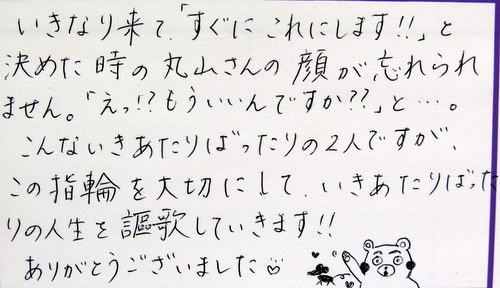 いきなり来て、「すぐに これにします!!」と
決めた時の丸山さんの顔が忘れられ
ません。「えっ!?もういいんですか??」と…。
こんないきあたりばったりの2人ですが、
この指輪を大切にして、いきあたりばった
りの人生を謳歌していきます!!
ありがとうございました